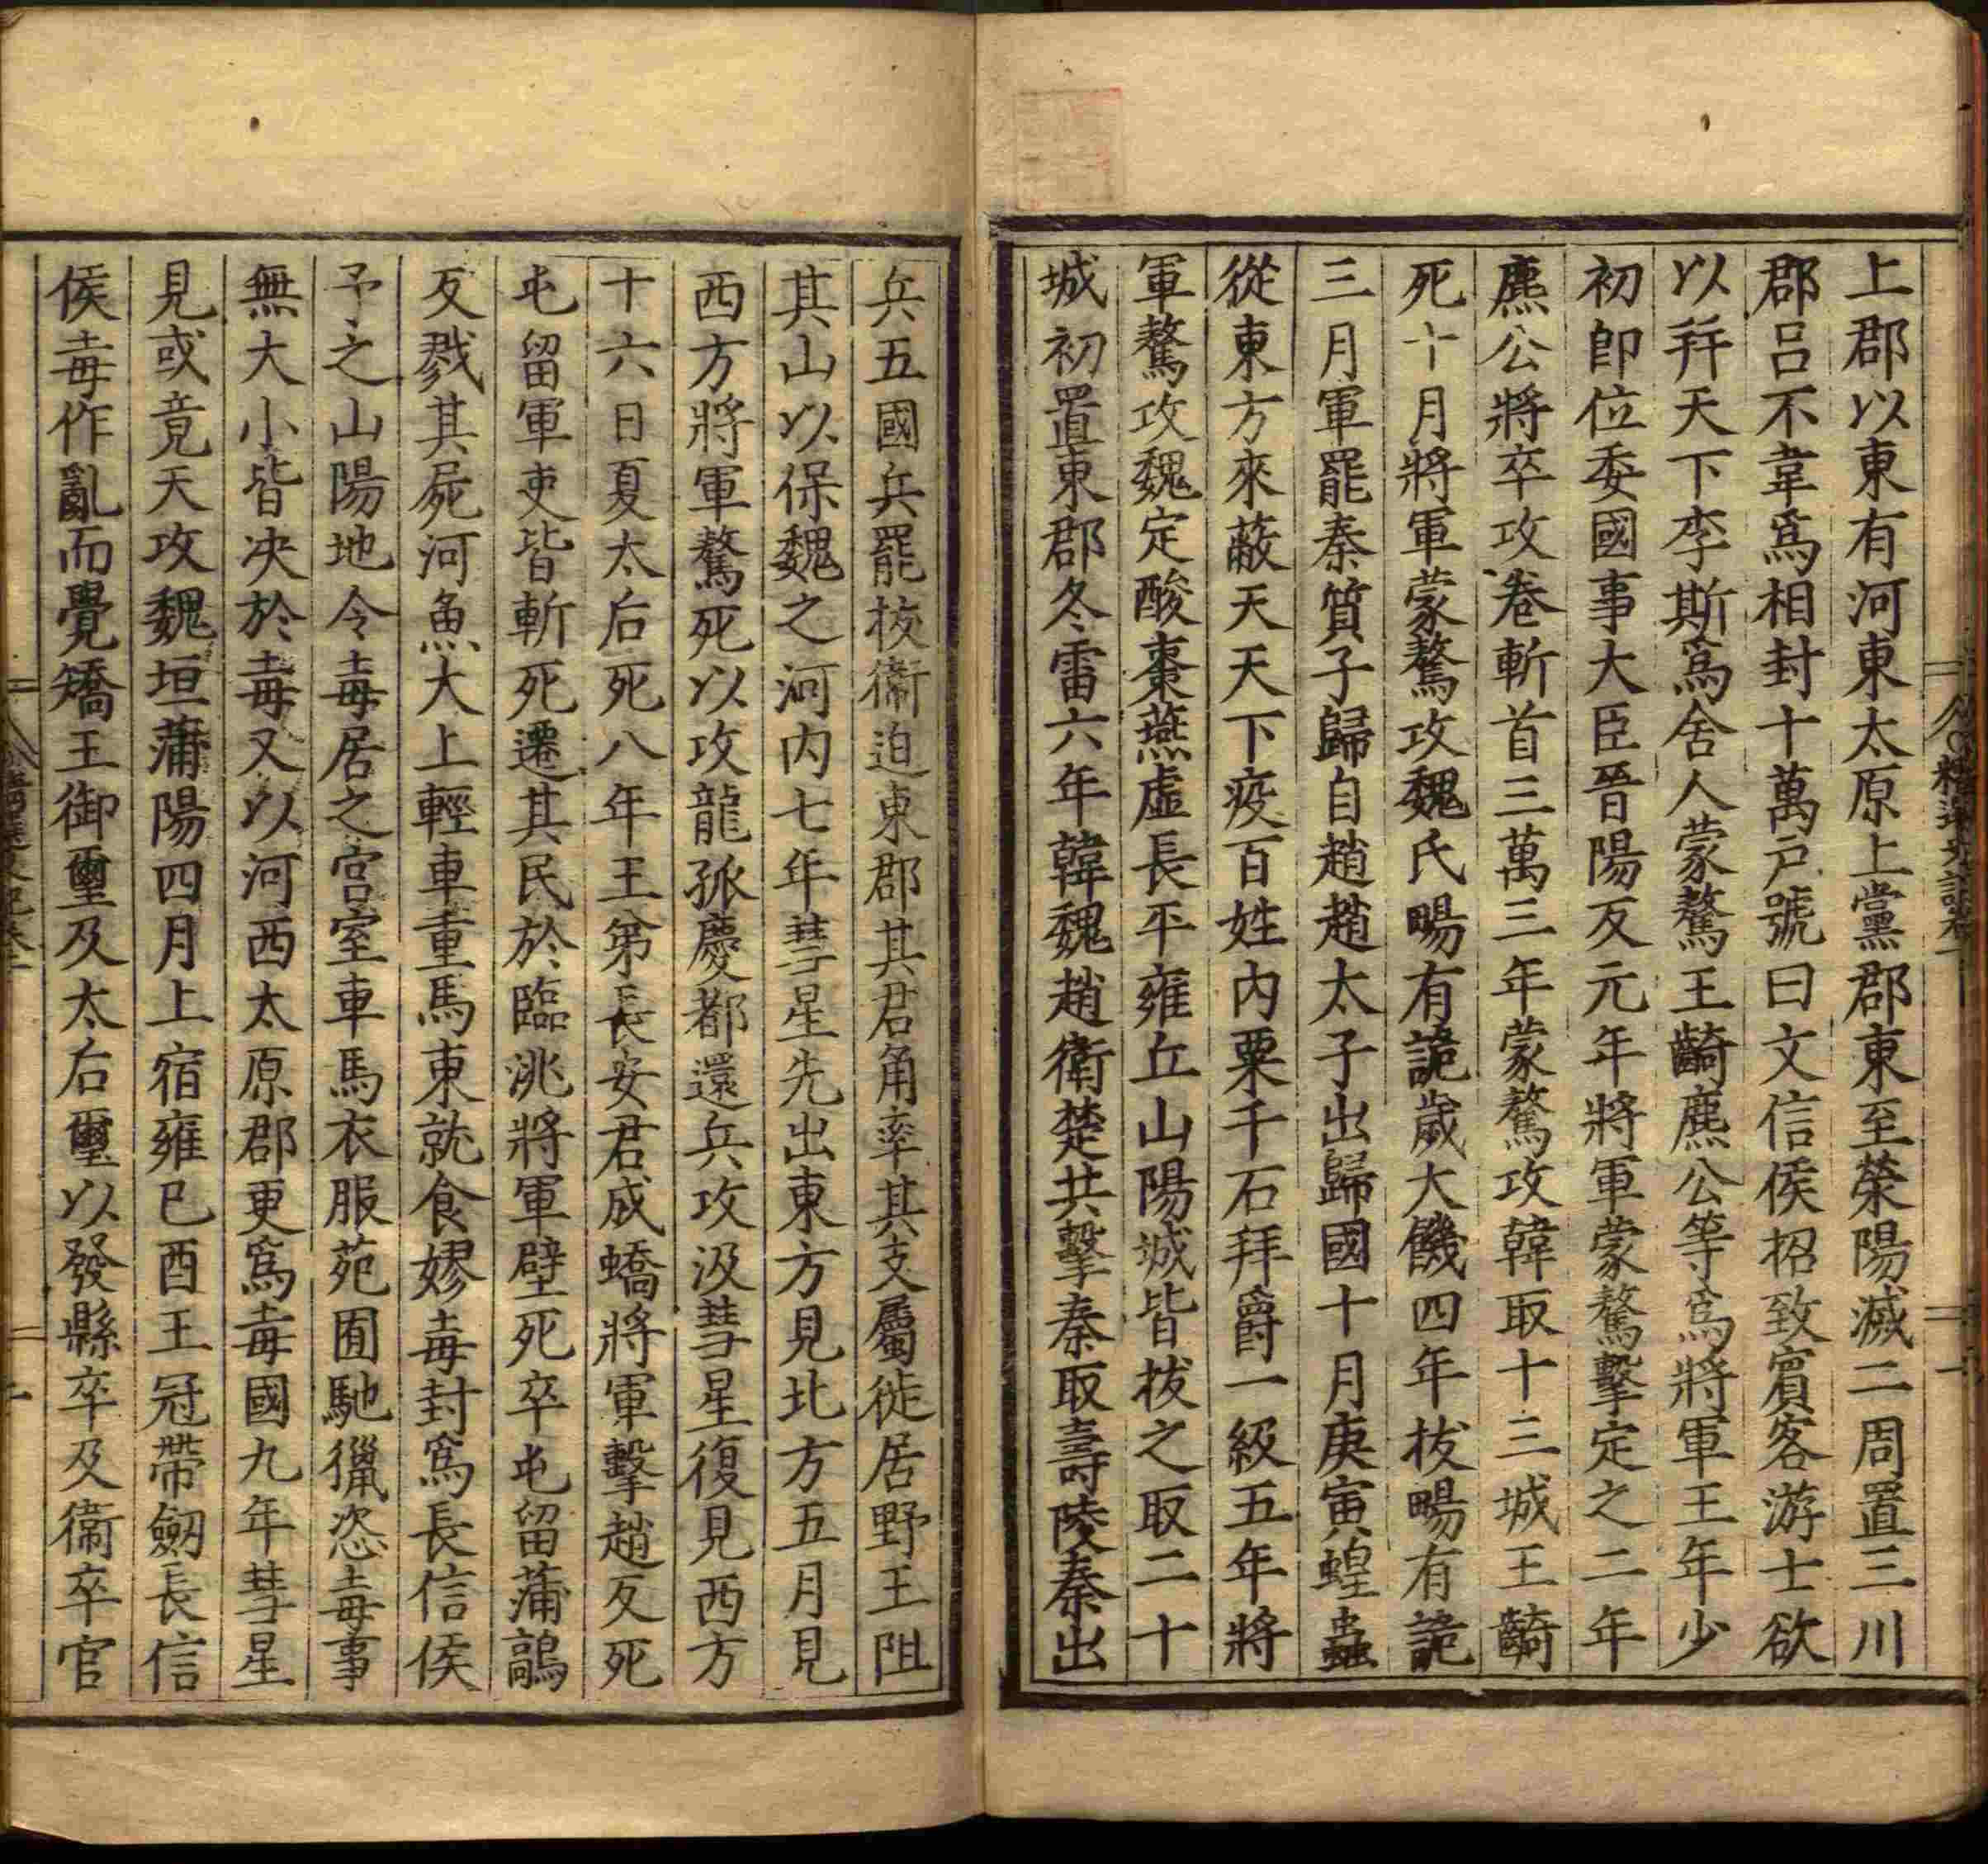 上郡以東有河東太原上黨郡東至滎陽滅二周置三川
郡呂不韋爲相封十萬戸號曰文信侯招致賓客游士欲
以幷天下李斯爲舍人蒙驁王齮麃公等爲將軍王年少
初卽位委國事大臣晉陽反元年將軍蒙驁擊定之二年
麃公將卒攻卷斬首三萬三年蒙驁攻韓取十三城王齮
死十月將軍蒙驁攻魏氏畼有詭歲大饑四年拔畼有詭
三月軍罷秦質子歸自趙趙太子出歸國十月庚寅蝗蟲
從東方來蔽天天下疫百姓內粟千石拜爵一級五年將
軍驁攻魏定酸棗燕虛長平雍丘山陽城皆拔之取二十
城初置東郡冬雷六年韓魏趙衛楚共擊秦取壽陵秦出
兵五國兵罷拔衞迫東郡其君角率其支屬徙居野王阻
其山以保魏之河內七年彗星先出東方見北方五月見
西方將軍驁死以攻龍孤慶都還兵攻汲彗星復見西方
十六日夏太后死八年王弟長安君成蟜將軍擊趙反死
屯留軍吏皆斬死遷其民於臨洮將軍壁死卒屯留蒲鶮
反戮其屍河魚大上輕車重馬東就食嫪毐封爲長信侯
予之山陽地令毐居之宮室車馬衣服苑囿馳獵恣毐事
無大小皆决於毐又以河西太原郡更爲毐國九年彗星
見或竟天攻魏垣蒲陽四月上宿雍已酉王冠帶劒長信
侯毐作亂而覺矯王御璽及太后璽以發縣卒及衞卒官